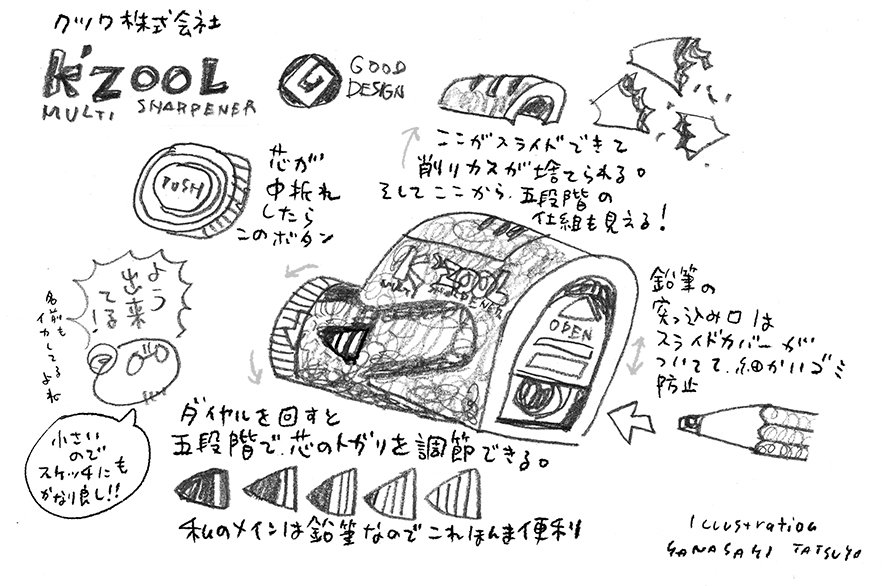 クツワ株式会社
k'zool
MULTI SHARPENER
GOOD
DESIGN
ここがスライドできて
削りカスが捨てられる。
そしてここから、五段階の
仕組も見える!
PUSH
芯が
中折れ
したら
このボタン
よう
出来
てる!
名前も
イカしてるよね
小さい
ので
スケッチにも
かなり良し!!
K'ZOOL
MULTI SHARPENER
OPEN
鉛筆の
突っ込み口は
スライドカバーが
ついてて、細かいゴミ
防止
ダイヤルを回すと
五段階で、芯のトガリを調節できる。
私のメインは鉛筆なのでこれほんま便利
Illustration
YANASAKI TATSUYO